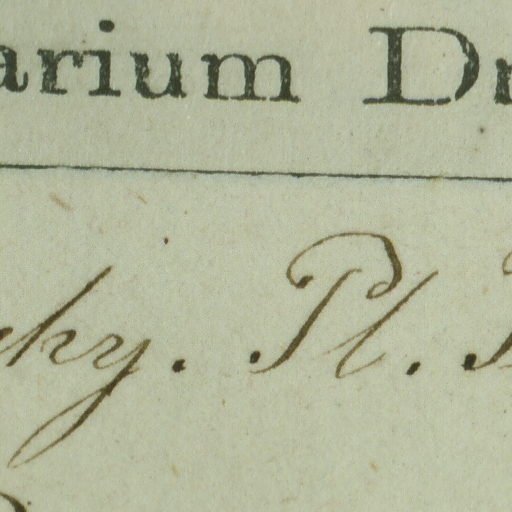 arium Dr
ky. Pl.